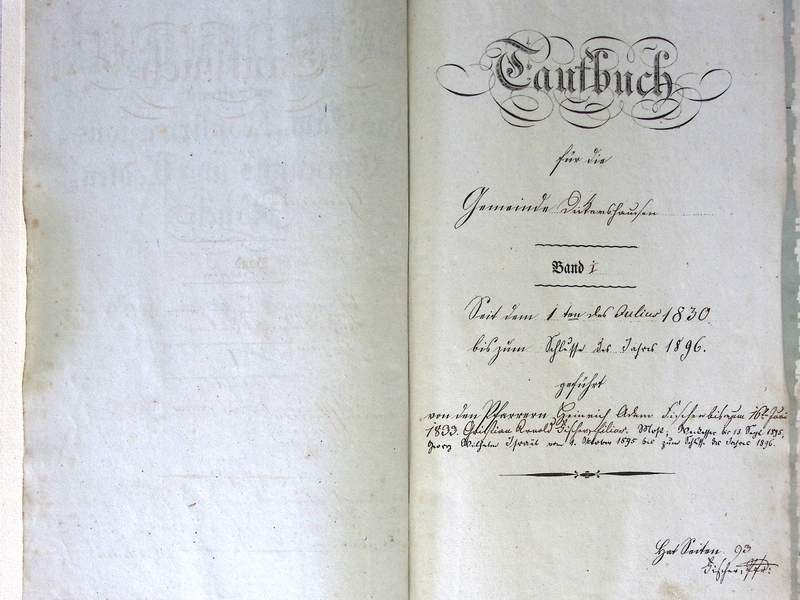 Taufbuch
für die
Gemeinde Dickershausen
Band 1
Seit dem 1 ten des Julius 1830
bis zum Schlusse des Jahres 1896.
geführt
von den Pfarrern Heinrich Adam Fischer bis zum 16t. Juni
1833. Christian Arnold Fischer, filius. bis 13. Sept. 1895,
Georg Wilhelm Israel vom 1. Oktober 1895 bis zum Schluß des Jahres 1896.
Hat Seiten 93
Fischer, Pfr.